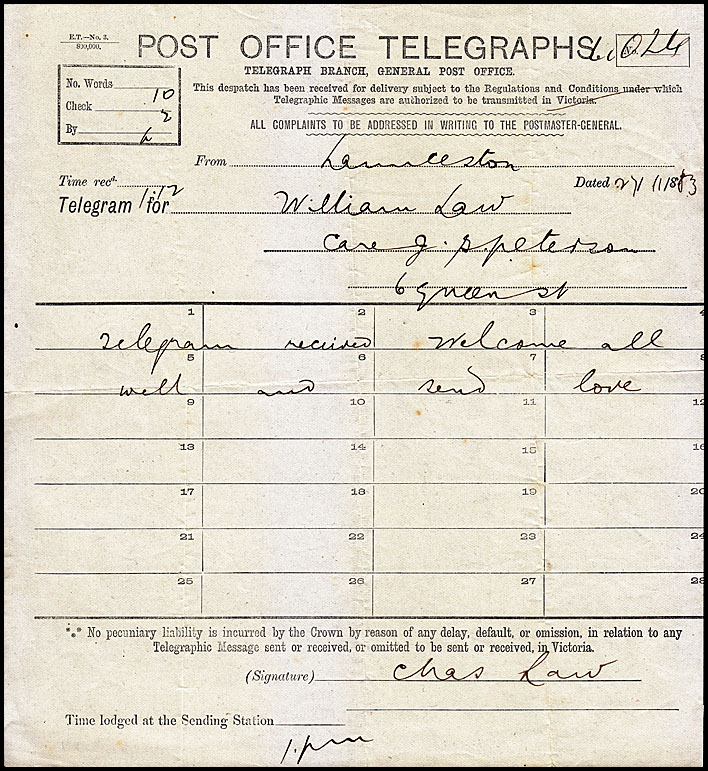 E.T.—No. 3.
800,000.
POST OFFICE TELEGRAPHS
TELEGRAPH BRANCH, GENERAL POST OFFICE.
This despatch has been received for delivery subject to the Regulations and Conditions under which
Telegraphic Messages are authorized to be transmitted in Victoria.
No. Words 10
Check 2
By
ALL COMPLAINTS TO BE ADDRESSED IN WRITING TO THE POSTMASTER-GENERAL.
From Launceston
Time recd. 1.12
Dated 27/11/1883
Telegram for William Law
Care J. S Peterson
6 Queen st
1 2 3 4
Telegram received Welcome all
5 6 7 8
well and send love
9 10 11 12
13 14 15 16
17 18 19 20
21 22 23 24
25 26 27 28
No pecuniary liability is incurred by the Crown by reason of any delay, default, or omission, in relation to any
Telegraphic Message sent or received, or omitted to be sent or received, in Victoria.
(Signature) Chas Law
Time lodged at the Sending Station
1.pm